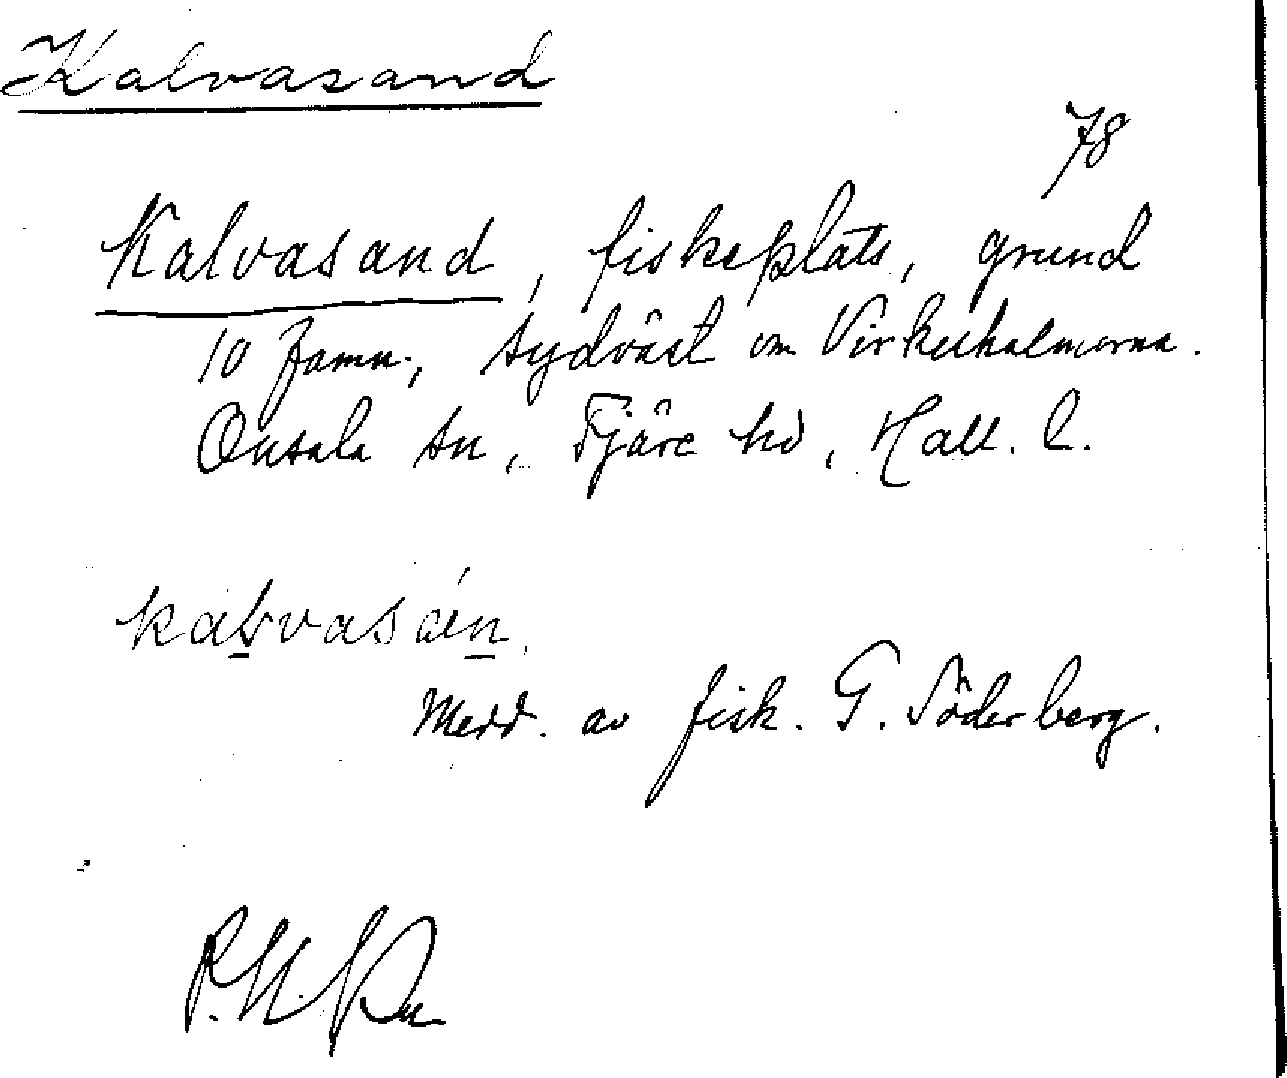 Kalvasand
78
Kalvasand, fiskeplats, grund
10 famn, sydväst om Virkesholmarna.
Onsala sn, Fjäre hd, Hall. l.
Medd. av fisk. G. Söderberg.